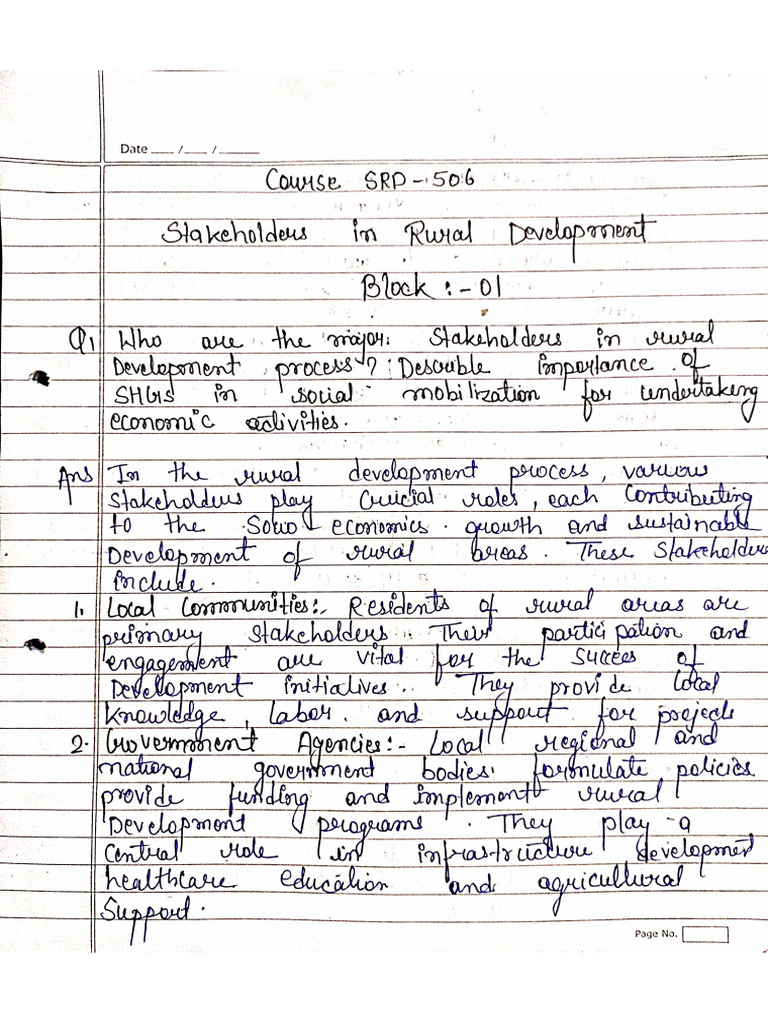 Date ___ / ___ / _____
Course SRD - 506
Stakeholders in Rural Development
Block :- 01
Q1 Who are the major stakeholders in rural
Development process? Describle importance of
SHGs in social mobilization for undertaking
economic activities.
Ans In the rural development process, various
Stakeholders play Crucial roles, each Contributing
to the Socio economics growth and sustainable
Development of rural areas. These Stakeholders
include.
1. Local Communities:- Residents of rural areas are
primary stakeholders. Their participation and
engagement are vital for the success of
Development initiatives. They provide local
knowledge, labor and support for projects
2. Government Agencies:- Local regional and
national government bodies formulate policies
provide funding and implement rural
Development programs. They play a
Central role in infrastructure development
healthcare education and agricultural
Support.
Page No.